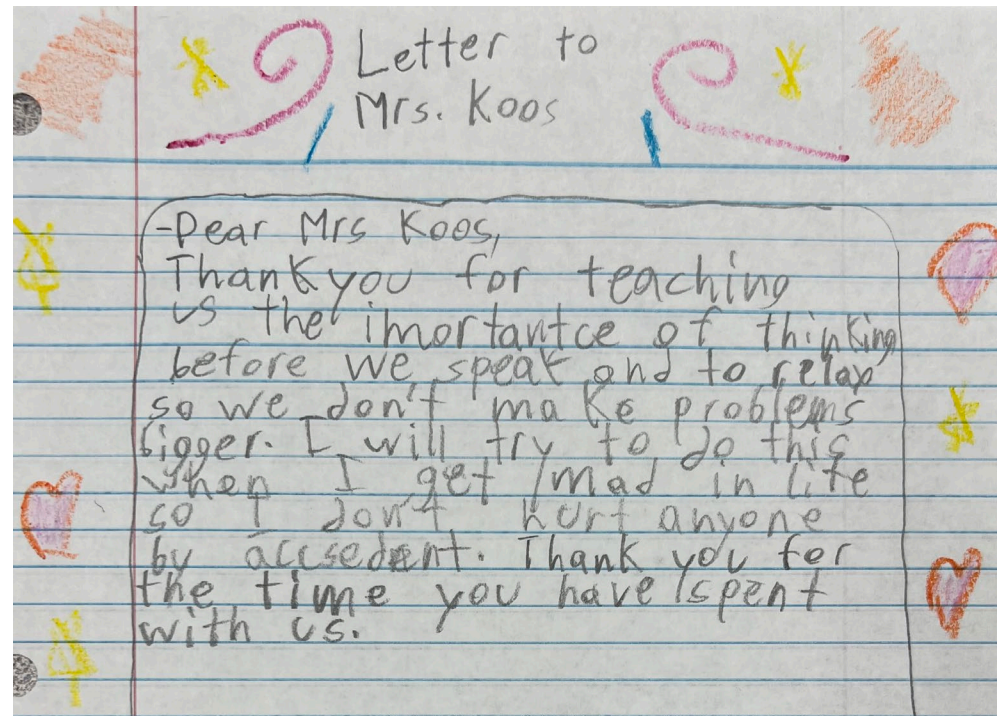 Letter to
Mrs. Koos
-Dear Mrs Koos,
Thank you for teaching
us the imortantce of thinking
before we speak and to relax
so we don't make problems
bigger. I will try to do this
when I get mad in life
so I don't hurt anyone
by accsedent. Thank you for
the time you have spent
with us.